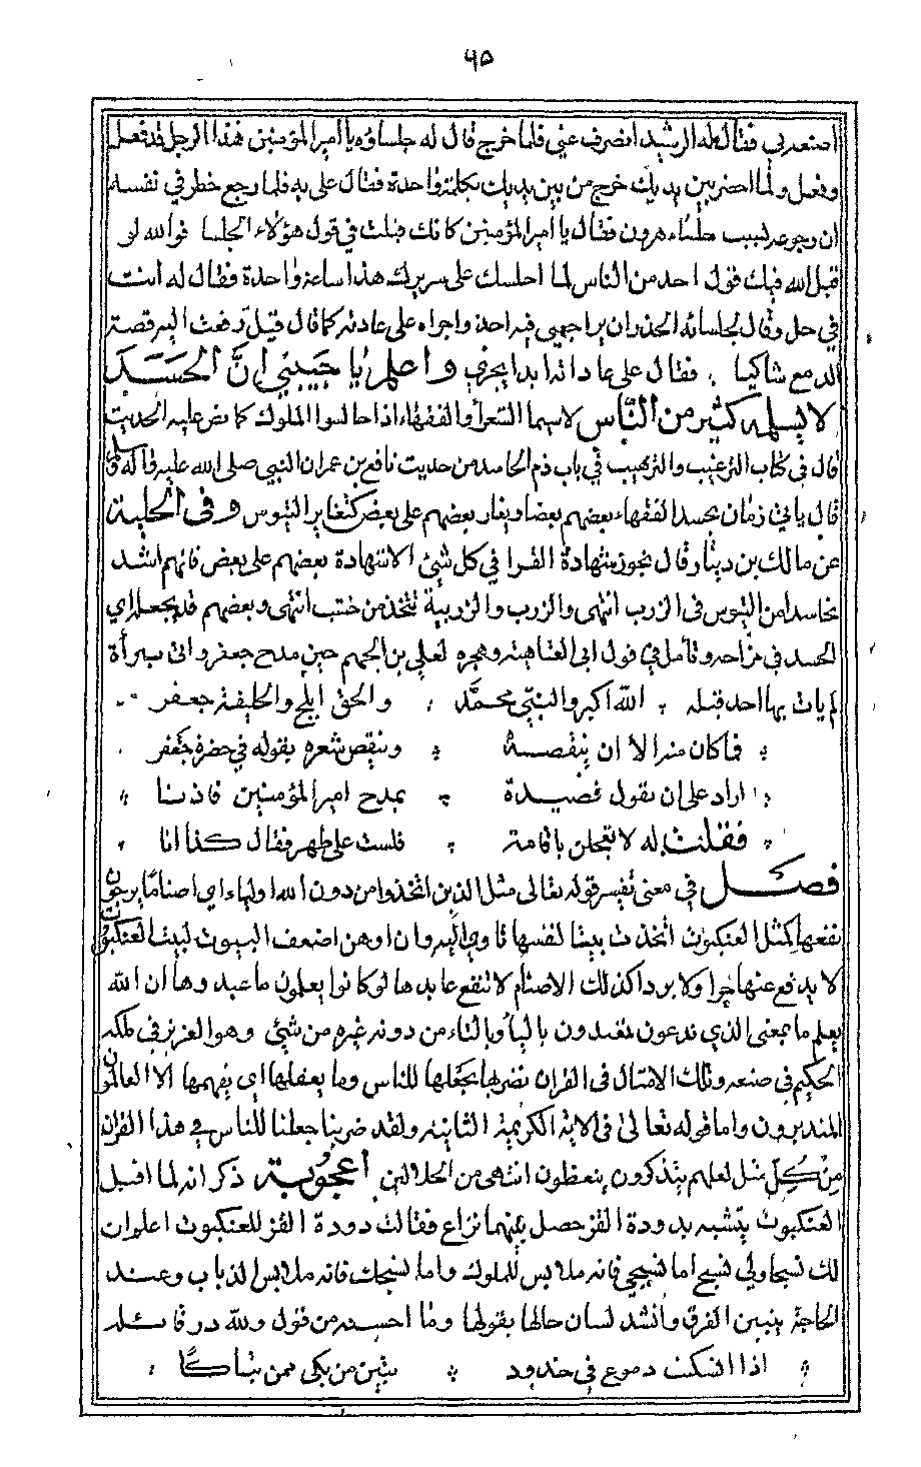 ٦٥
اصنعه بي فقال له الرشيد انصرف عني فلما خرج قال له جلساؤه يا امير المؤمنين هذا الرجل قد فعل
وفعل ولما احضر بين يديك خرج من بين يديك بكلمة واحدة فقال علي به فلما رجع خطر في نفسه
ان رجوعه لسبب جلساء هرون فقال يا امير المؤمنين كانك قبلت في قول هؤلاء الجلسا فوالله لو
قبل الله فيك قول احد من الناس لما اجلسك على سريرك هذا ساعة واحدة فقال له انت
في حل وقال لجلسائه الحذر ان يراجعني فيه احد واجراه على عادته كما قال قيل رفعت اليه قصة
الدمع شاكيا ، فقال على عاداته ابدا يجري واعلم يا حبيبي ان الحسد
لا يسلم منه كثير من الناس لا سيما الشعرأ والفقهاء اذا جالسوا الملوك كما نص عليه الحديث
قال في كتاب الترغيب والترهيب في باب ذم الحاسد من حديث نافع بن عمران النبي صلى الله عليه
قال ياتي زمان يحسد الفقهاء بعضهم بعضا ويغار بعضهم على بعض كتغاير التيوس وفي الحلية
عن مالك بن دينار قال تجوز شهادة القرا في كل شئ الا شهادة بعضهم على بعض فانهم اشد
تحاسدا من التيوس في الزرب انتهى والزرب والزريبة تتخذ من خشب انتهى وبعضهم قد يجعل
الحسد في مزاحه وتأمل في قول ابي العتاهية وهجوه لعلي بن الجهم حين مدح جعفر واتى ببرأة
لم يات بها احد قبله ؛ الله اكبر والنبي محمد ، والحق ابلج والخليفة جعفر
فما كان منه الا ان ينقصه ؛ وينقص شعره بقوله في حضرة جعفر
اراد علي ان يقول قصيدة ؛ بمدح امير المؤمنين فاذنا
فقلت له لا تعجلن باقامة ؛ فلست على طهر فقال كذا انا
فصل في معنى تفسير قوله تعالى مثل الذين اتخذوا من دون الله اولياء اي اصناما يرجون
نفعها كمثل العنكبوت اتخذت بيتا لنفسها تاوي اليه وان اوهن اضعف البيوت لبيت العنكبوت
لا يدفع عنها حرا ولا بردا كذلك الاصنام لا تنفع عابدها لو كانوا يعلمون ما عبدوها ان الله
يعلم ما بمعنى الذي تدعون تعبدون بالياء والتاء من دونه غيره من شئ وهو العزيز في ملكه
الحكيم في صنعه وتلك الامثال في القران نضربها نجعلها للناس وما يعقلها اي يفهمها الا العالمون
المتدبرون واما قوله تعالى في الاية الكريمة الثانية ولقد ضربنا جعلنا للناس في هذا القران
من كل مثل لعلهم يتذكرون يتعظون انتهى من الجلالين اعجوبة ذكر انه لما اقبل
العنكبوت يتشبه بدودة القز حصل بينهما نزاع فقالت دودة القز للعنكبوت اعلم ان
لك نسجا ولي نسج اما نسجي فانه ملابس للملوك واما نسجك فانه ملابس الذباب وعند
الحاجة يتبين الفرق وانشد لسان حالها بقولها وما احسنه من قول ولله در قائله
اذا انسكبت دموع في خدود ؛ تبين من بكى ممن تباكا